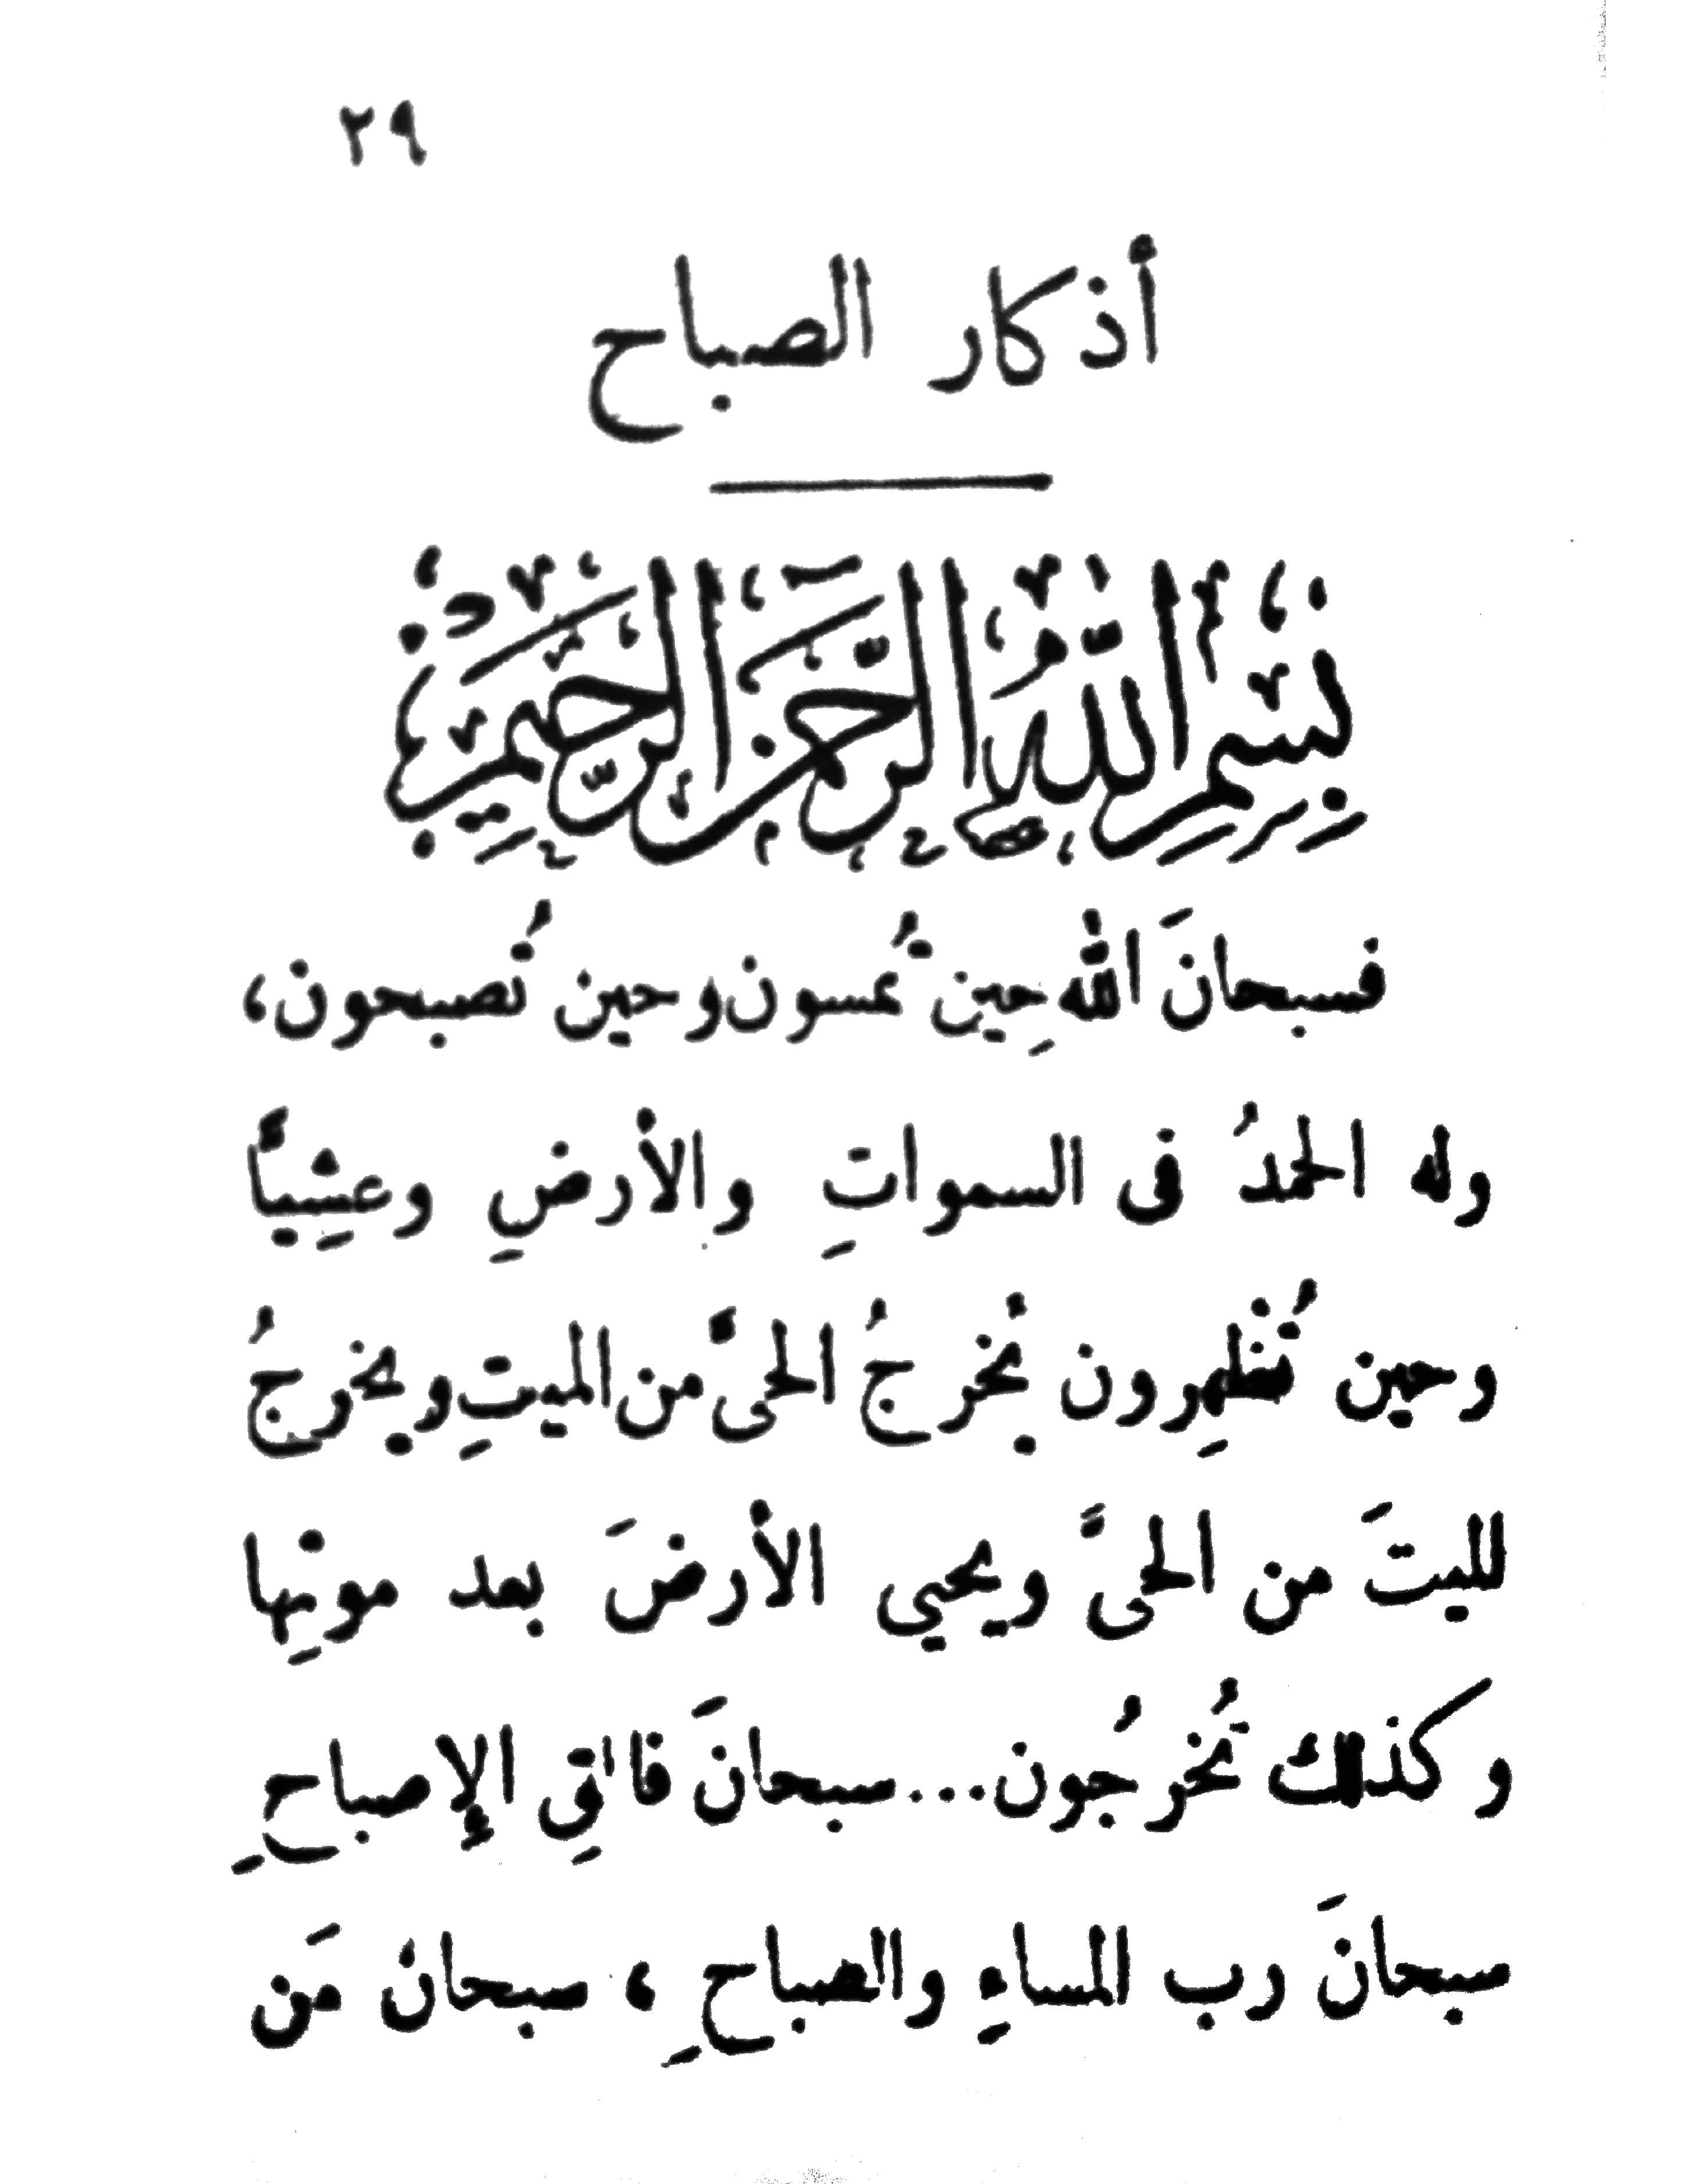 ٢٩
أذكار الصباح
بسم الله الرحمن الرحيم
فسبحانَ الله حِين تُمسون وحين تُصبحون،
وله الحمدُ فى السمواتِ والأرضِ وعشِياًّ
وحين تُظهِرون يُخرجُ الحىَّ من الميتِ ويخرجُ
الميتَ من الحىَّ ويحيي الأرضَ بعد موتِها
وكذلك تُخرجُون... سبحانَ فالقِ الإصباحِ
سبحانَ رب المساءِ والصباحِ ، سبحان مَن